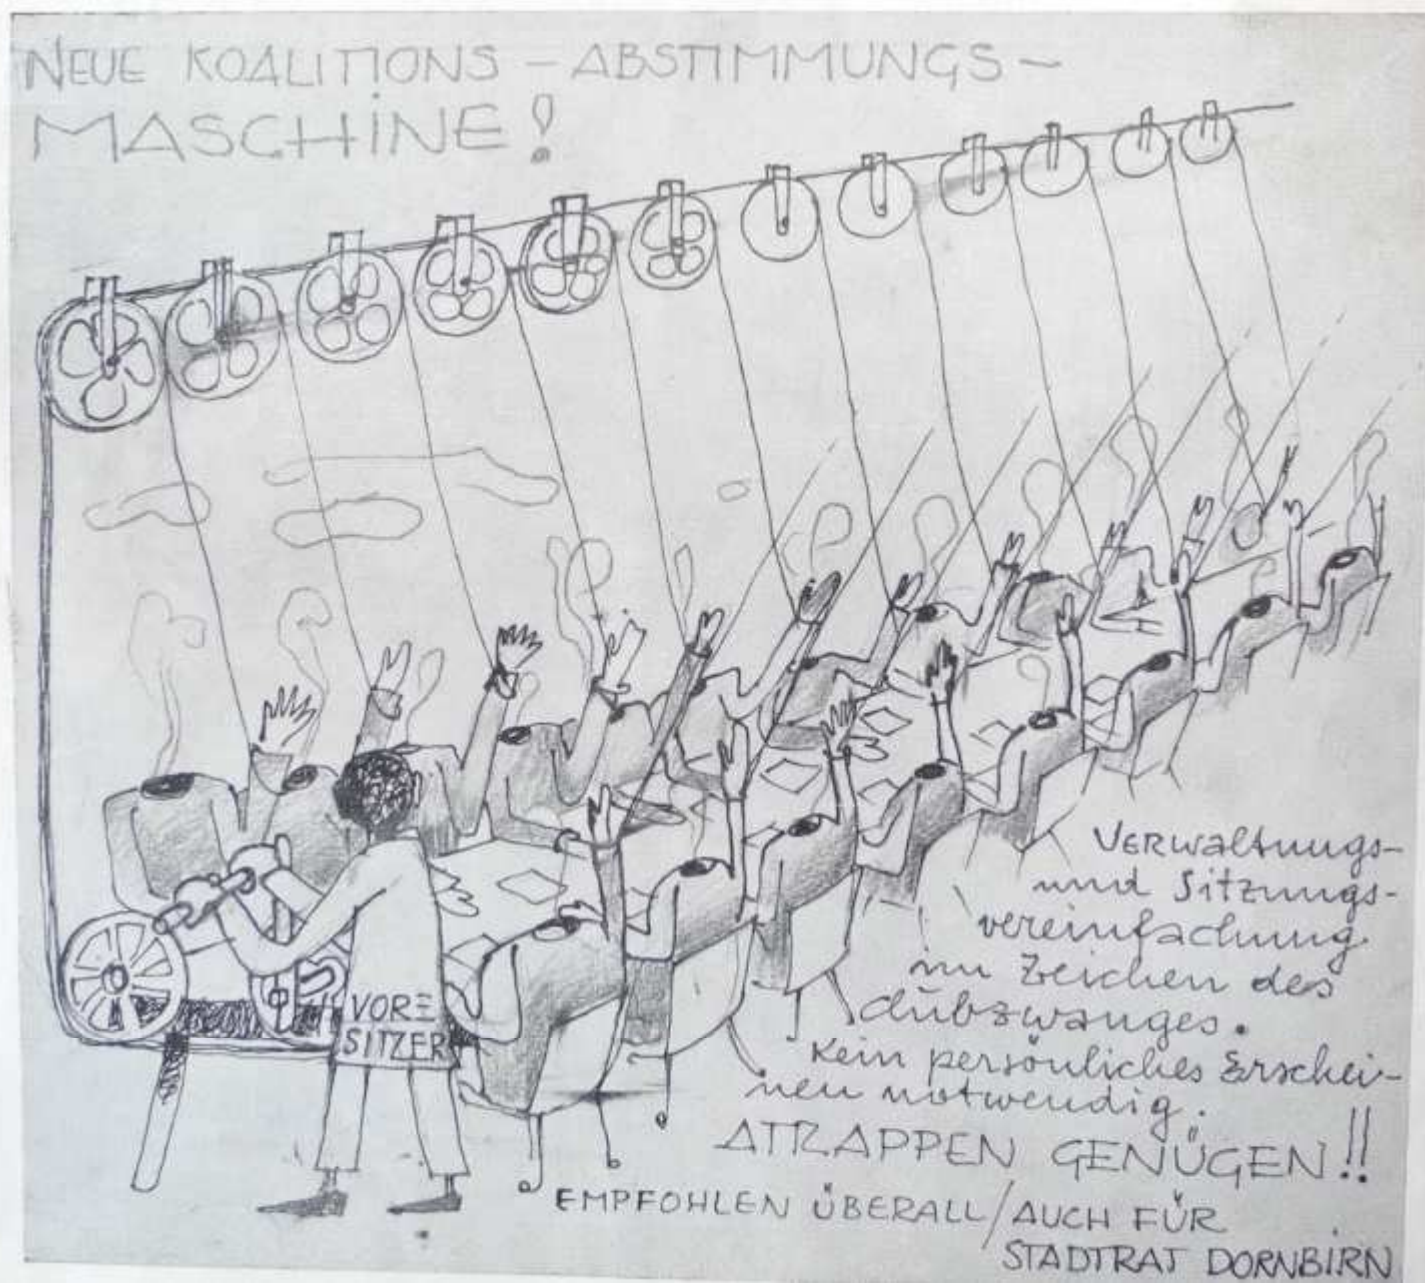 NEUE KOALITIONS-ABSTIMMUNGS-
MASCHINE!
VORE
SITZER
Verwaltungs-
und Sitzungs-
vereinfachung
im Zeichen des
Clubzwanges.
Kein persönliches Erschei-
nen notwendig.
ATRAPPEN GENÜGEN!!
EMPFOHLEN ÜBERALL/AUCH FÜR
STADTRAT DORNBIRN